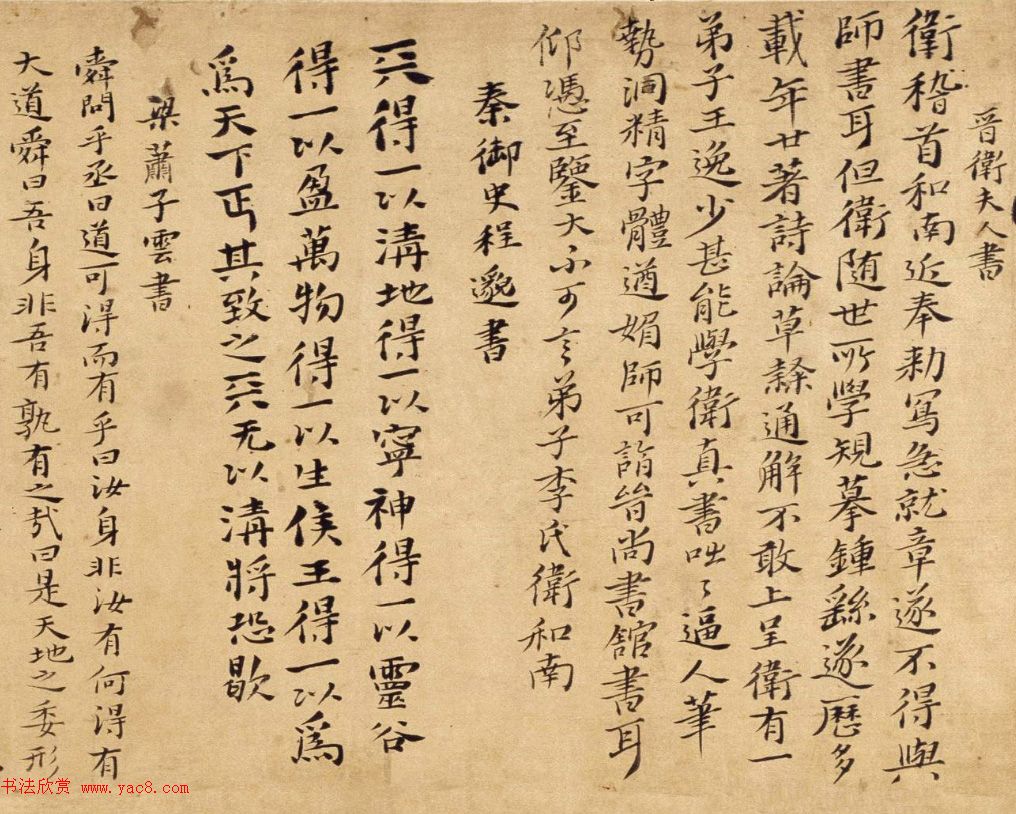 晉衛夫人書
衛稽首和南近奉勑寫急就章遂不得與
師書耳但衛随世所學規摹鍾繇遂歷多
載年廿著詩論草隸通解不敢上呈衛有一
弟子王逸少甚能學衛真書咄〻逼人筆
勢洞精字體遒媚師可詣晉尚書舘書耳
仰憑至鑒大不可言弟子李氏衛和南
秦御史程邈書
天得一以清地得一以寧神得一以靈谷
得一以盈萬物得一以生侯王得一以爲
爲天下正其致之天无以清將恐歇
梁蕭子雲書
舜問乎丞曰道可得而有乎曰汝身非汝有何得有
大道舜曰吾身非吾有孰有之哉曰是天地之委形
书法欣赏 www.yac8.com